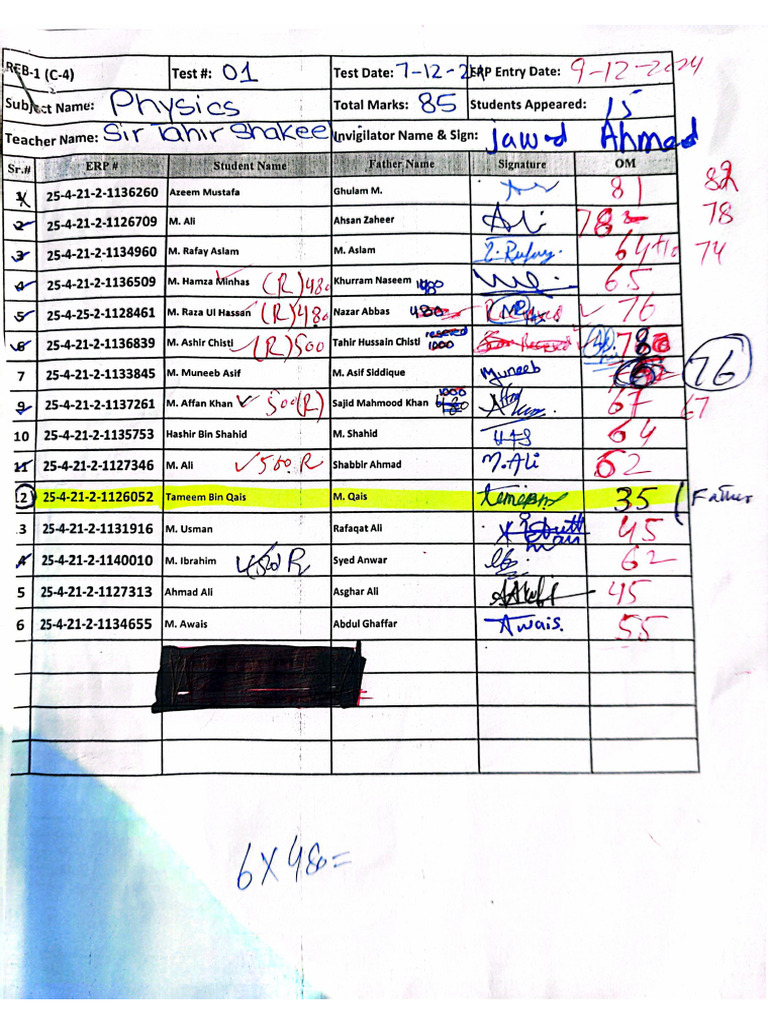 REB-1 (C-4) Test #: 01 Test Date: 7-12-24 ERP Entry Date: 9-12-2024
Subject Name: Physics Total Marks: 85 Students Appeared: 15
Teacher Name: Sir Tahir Shakeel Invigilator Name & Sign: Jawad Ahmed
Sr.# ERP # Student Name Father Name Signature OM
1 25-4-21-2-1136260 Azeem Mustafa Ghulam M. 81 82
2 25-4-21-2-1126709 M. Ali Ahsan Zaheer Ali 78 78
3 25-4-21-2-1134960 M. Rafay Aslam M. Aslam 64+10 74
4 25-4-21-2-1136509 M. Hamza Minhas (R) 480 Khurram Naseem 480 65
5 25-4-25-2-1128461 M. Raza Ul Hassan (R) 480 Nazar Abbas 480 76
6 25-4-21-2-1136839 M. Ashir Chisti (R) 500 Tahir Hussain Chisti 1000 78
7 25-4-21-2-1133845 M. Muneeb Asif M. Asif Siddique Muneeb 76
9 25-4-21-2-1137261 M. Affan Khan 500(R) Sajid Mahmood Khan 1000 67 67
10 25-4-21-2-1135753 Hashir Bin Shahid M. Shahid 64
11 25-4-21-2-1127346 M. Ali 500 R Shabbir Ahmad M. Ali 62
2 25-4-21-2-1126052 Tameem Bin Qais M. Qais 35 (Father
3 25-4-21-2-1131916 M. Usman Rafaqat Ali 45
4 25-4-21-2-1140010 M. Ibrahim Syed Anwar 62
5 25-4-21-2-1127313 Ahmad Ali Asghar Ali 45
6 25-4-21-2-1134655 M. Awais Abdul Ghaffar Awais. 55
6x480=